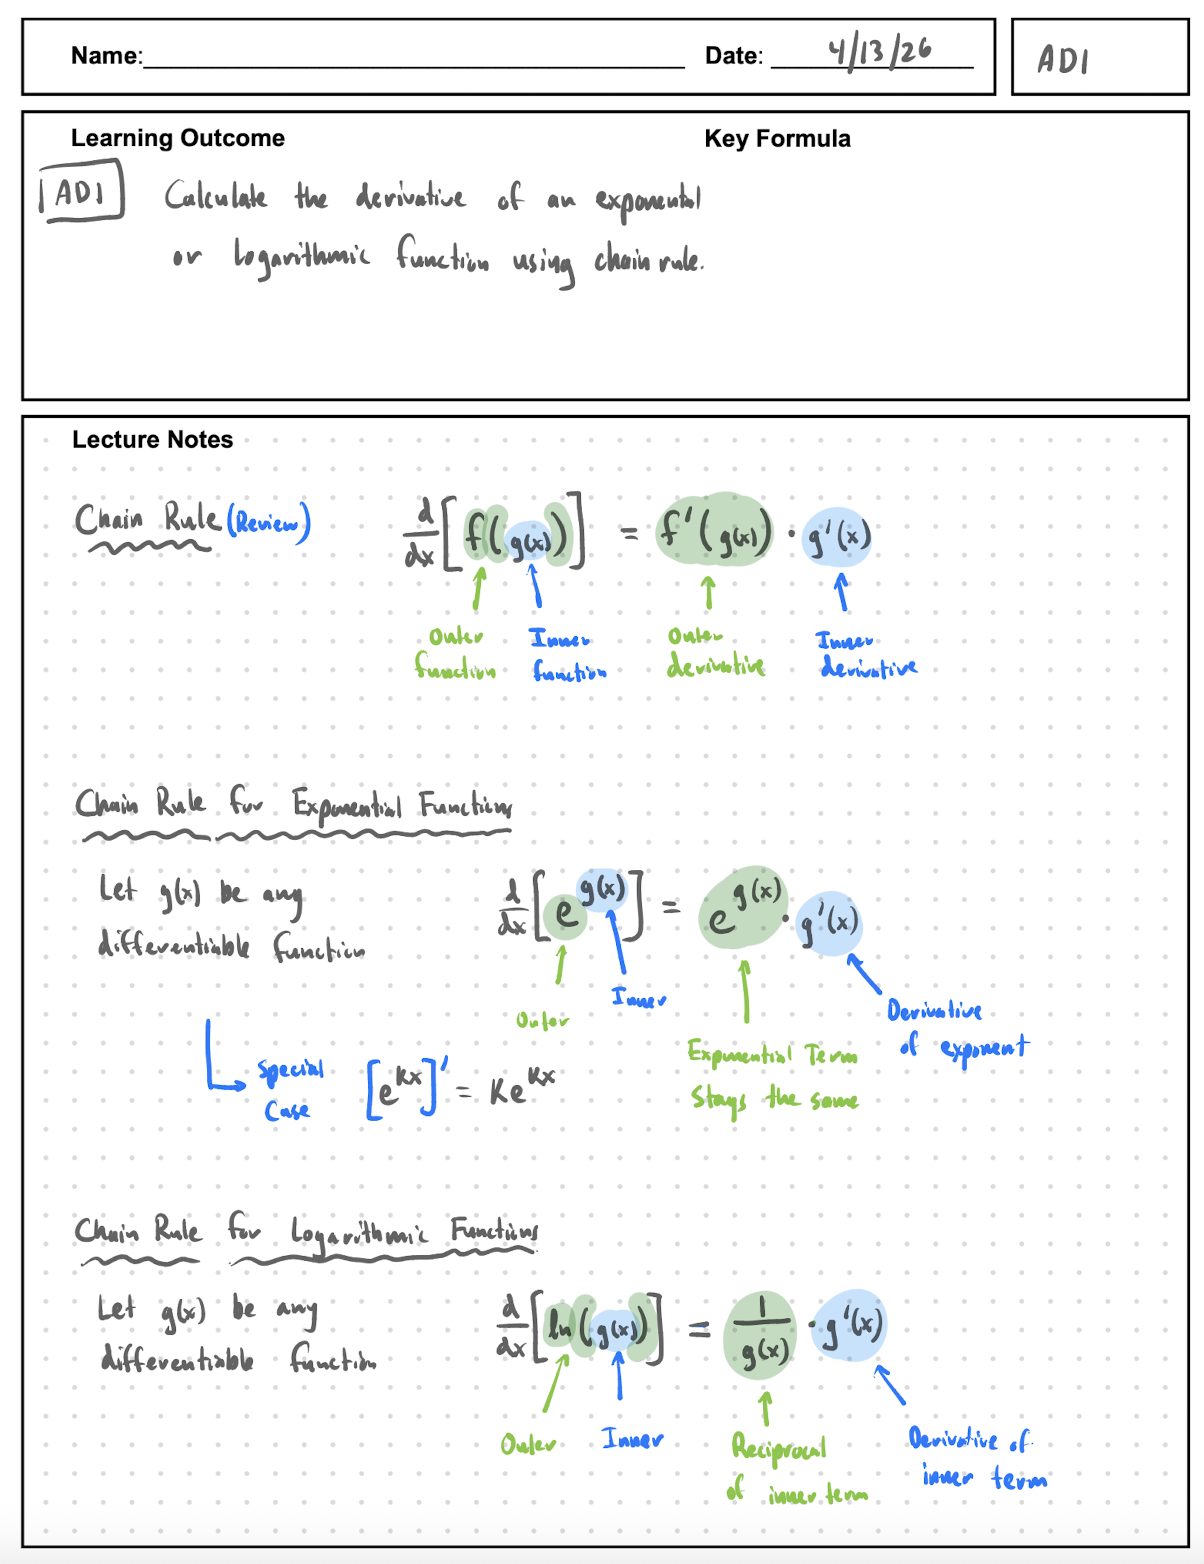 Name: Date: 4/13/26 AD1
Learning Outcome Key Formula
AD1 Calculate the derivative of an exponental
or logarithmic function using chain rule.
Lecture Notes
Chain Rule (Review) d/dx [f(g(x))] = f'(g(x)) · g'(x)
Outer function Inner function Outer derivative Inner derivative
Chain Rule for Exponential Functions
Let g(x) be any
differentiable function
d/dx [e^g(x)] = e^g(x) · g'(x)
Outer Inner
Exponential Term
Stays the same
Derivative
of exponent
Special
Case
[e^kx]' = Ke^kx
Chain Rule for Logarithmic Functions
Let g(x) be any
differentiable function
d/dx [ln(g(x))] = 1/g(x) · g'(x)
Outer Inner
Reciprocal
of inner term
Derivative of
inner term